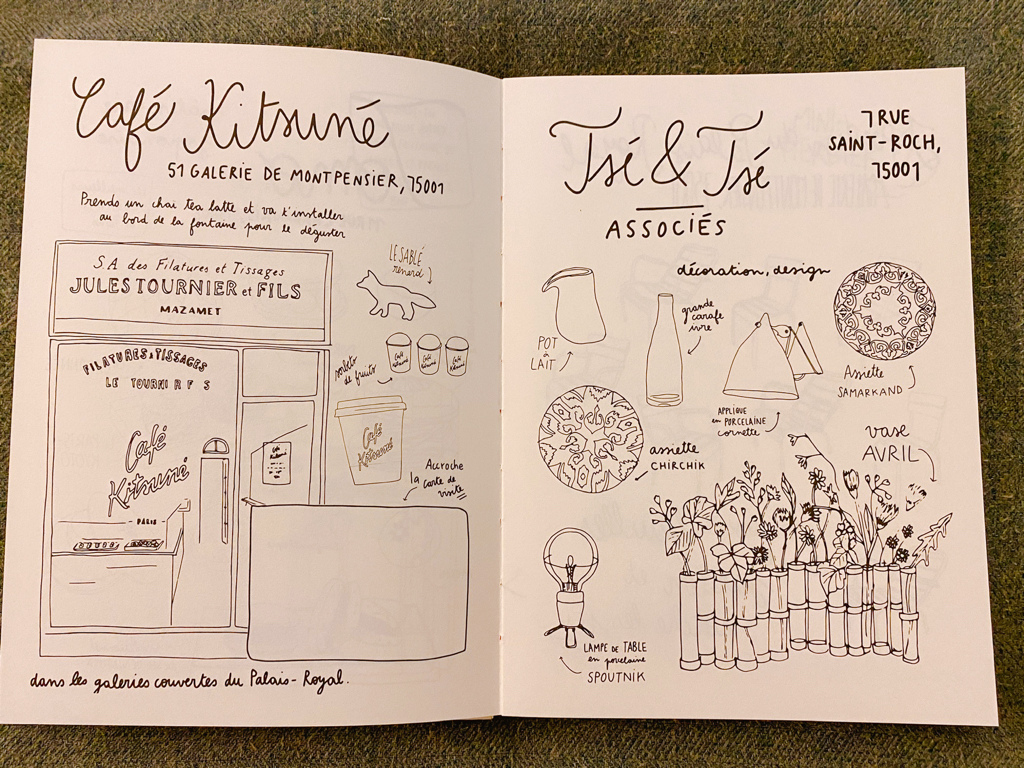 Café Kitsuné
51 GALERIE DE MONTPENSIER, 75001
Prends un chai tea latte et va t'installer
au bord de la fontaine pour le déguster
S.A des Filatures et Tissages
JULES TOURNIER et FILS
MAZAMET
FILATURES & TISSAGES
LE TOURNI R F S
Café
Kitsuné
PARIS
LE SABLÉ
renard
sorbets
de fruits
Café
Kitsuné
Accroche
la carte de
visite
dans les galeries couvertes du Palais-Royal.
Tsé & Tsé
ASSOCIÉS
7 RUE
SAINT-ROCH,
75001
décoration, design
POT
à
LAIT
grande
carafe
ivre
APPLIQUE
en PORCELAINE
cornette
Assiette
SAMARKAND
assiette
CHIRCHIK
vase
AVRIL
LAMPE DE TABLE
en porcelaine
SPOUTNIK